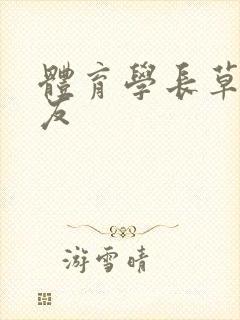 體育學長草
友
游雪晴